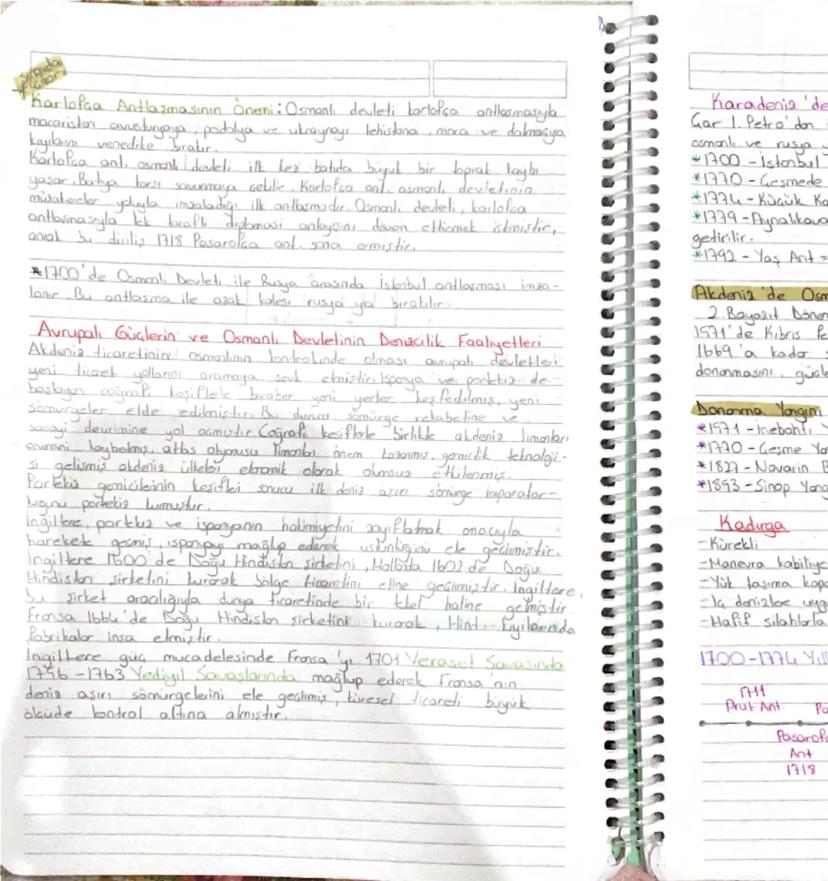 Sınavda Çıkar
Karlofça Antlaşmasının Önemi: Osmanlı devleti karlofça antlaşmasıyla
macaristan avusturyaya, podolya ve ukraynayı lehistana, mora ve dalmaçya
kıyılarını venedike bıratır.
Karlofça ant. osmanlı devleti ilk kez batıda büyük bir toprak kaybı
yaşar. Batıya karşı savunmaya çekilir. Karlofça ant. osmanlı devletinin
müzakereler yoluyla imzaladığı ilk antlaşmadır. Osmanlı devleti, karlofça
antlaşmasıyla tek taraflı diplomasi anlayışını devam ettirmek istemiştir,
ancak bu diriliş 1718 Pasarofça ant. sona ermiştir.
*1700'de Osmanlı Devleti ile Rusya arasında İstanbul antlaşması imza-
lanır. Bu antlaşma ile azak kalesi rusya ya bıratılır.
Avrupalı Güçlerin ve Osmanlı Devletinin Denizcilik Faaliyetleri
Akdeniz ticaretinin osmanlının kontrolünde olması avrupalı devletleri
yeni ticaret yollarını aramaya sevk etmiştir. İspanya ve portekiz de
başlayan coğrafi keşiflerle beraber yeni yerler keşfedilmiş, yeni
sömürgeler elde edilmiştir. Bu durum sömürge rekabetine ve
sanayi devrimine yol açmıştır. Coğrafi keşiflerle birlikte akdeniz limanları
önemini kaybetmiş, atlas okyanusu limanları önem kazanmış, gemicilik teknoloji-
si gelişmiş akdeniz ülkeleri ekonomik olarak olumsuz etkilenmiş.
Portekiz gemicilerinin keşifleri sonucu ilk deniz aşırı sömürge imparator-
luğunu portekiz kurmuştur.
İngiltere, portekiz ve ispanyanın hakimiyetini zayıflatmak amacıyla
harekete geçmiş, ispanyayı mağlup ederek üstünlüğünü ele geçirmiştir.
İngiltere 1600'de Doğu Hindistan şirketini, Hollanda 1602'de Doğu
Hindistan şirketini kurarak bölge ticaretini eline geçirmiştir. İngiltere,
bu şirket aracılığıyla dünya ticaretinde bir tekel haline gelmiştir
Fransa 1664'de Doğu Hindistan şirketini kurarak, Hint kıyılarında
fabrikalar inşa etmiştir.
İngiltere güç mücadelesinde Fransa'yı 1701 Veraset Savaşında
1756-1763 Yediyıl Savaşlarında mağlup ederek Fransa'nın
deniz aşırı sömürgelerini ele geçirmiş, küresel ticareti büyük
ölçüde kontrol altına almıştır.
Karadeniz'de
Çar I. Petro'dan
osmanlı ve rusya
*1700 - İstanbul
*1770 - Çeşmede
*1774 - Küçük Ka
*1779 - Aynalıkava
getirilir.
*1792 - Yaş Ant =
Akdeniz'de Osm
2. Bayazıt Dönem
1571'de Kıbrıs Fe
1669'a kadar
donanmasını, güçle
Donanma Yangın
*1571 - İnebahtı Y
*1770 - Çeşme Ya
*1827 - Navarin B
*1853 - Sinop Yang
Kadırga
- Kürekli
- Manevra kabiliye
- Yük taşıma kapa
- İç denizlere uyg
- Hafif silahlarla
1700-1774 Yıll
1711
Prut Ant
Pa
Pasarofç
Ant
1718